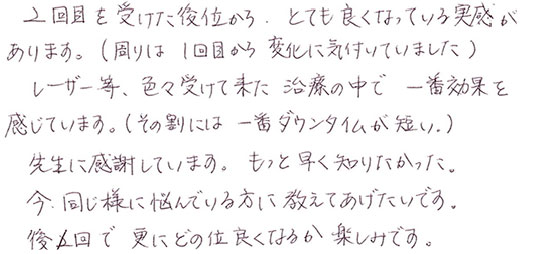 2回目を受けた後位から、とても良くなっている実感が
あります。(周りは1回目から変化に気付いていました)
レーザー等、色々受けて来た治療の中で一番効果を
感じています。(その割には一番ダウンタイムが短い.)
先生に感謝しています。もっと早く知りたかった。
今、同じ様に悩んでいる方に教えてあげたいです。
後 回で更にどの位良くなるか楽しみです。